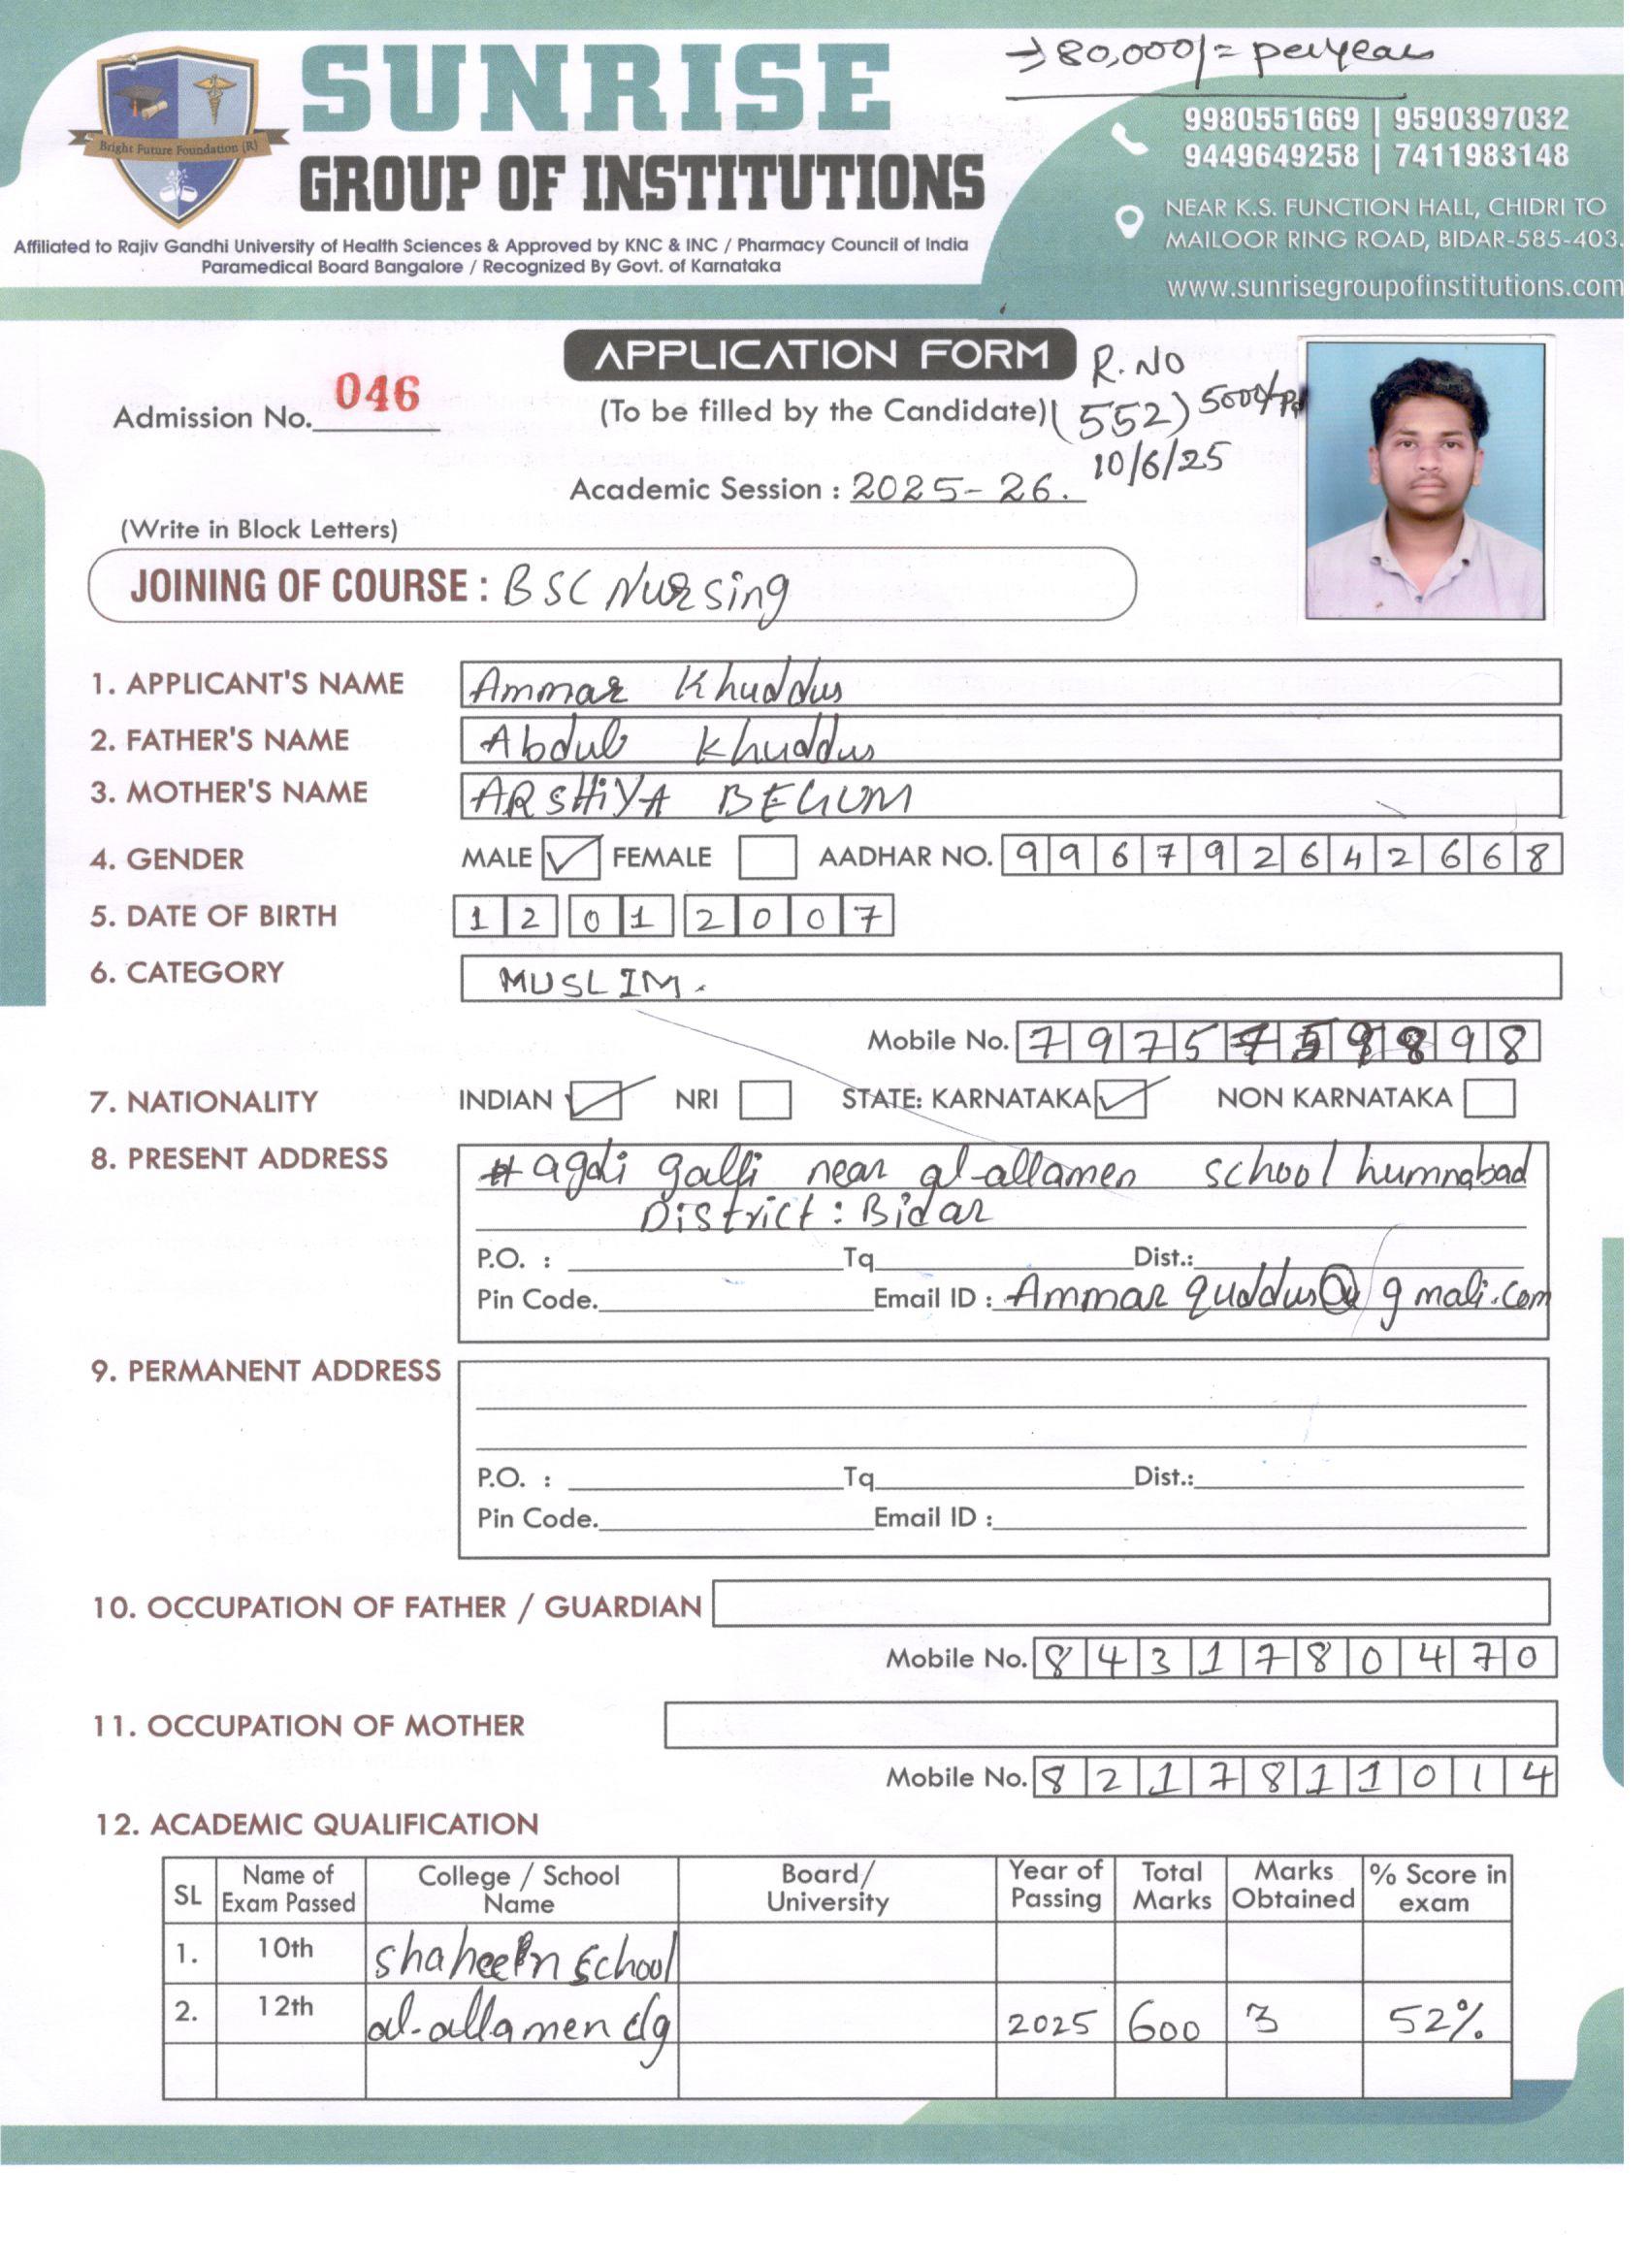 → 80,000/= per years
SUNRISE
GROUP OF INSTITUTIONS
Bright Future Foundation (R)
Affiliated to Rajiv Gandhi University of Health Sciences & Approved by KNC & INC / Pharmacy Council of India
Paramedical Board Bangalore / Recognized By Govt. of Karnataka
9980551669 | 9590397032
9449649258 | 7411983148
NEAR K.S. FUNCTION HALL, CHIDRI TO
MAILOOR RING ROAD, BIDAR-585-403.
www.sunrisegroupofinstitutions.com
APPLICATION FORM
R.NO
Admission No. 046
(To be filled by the Candidate) (552) 5000/-
10/6/25
Academic Session : 2025-26.
(Write in Block Letters)
JOINING OF COURSE : BSC Nursing
1. APPLICANT'S NAME Ammar Khuddus
2. FATHER'S NAME Abdul Khuddus
3. MOTHER'S NAME ARSHiYA BEGUM
4. GENDER MALE ✓ FEMALE AADHAR NO. 996792642668
5. DATE OF BIRTH 12 01 2007
6. CATEGORY MUSLIM.
Mobile No. 7975 98
7. NATIONALITY INDIAN ✓ NRI STATE: KARNATAKA ✓ NON KARNATAKA
8. PRESENT ADDRESS # agdi galli near al-allamen school humnabad
District : Bidar
P.O. : Tq Dist.:
Pin Code. Email ID : Ammar quddus@gmali.com
9. PERMANENT ADDRESS
P.O. : Tq Dist.:
Pin Code. Email ID :
10. OCCUPATION OF FATHER / GUARDIAN
Mobile No. 8431780470
11. OCCUPATION OF MOTHER
Mobile No. 8217811014
12. ACADEMIC QUALIFICATION
SL Name of Exam Passed College / School Name Board/ University Year of Passing Total Marks Marks Obtained % Score in exam
1. 10th shaheen school
2. 12th al-allamen clg 2025 600 3 52%